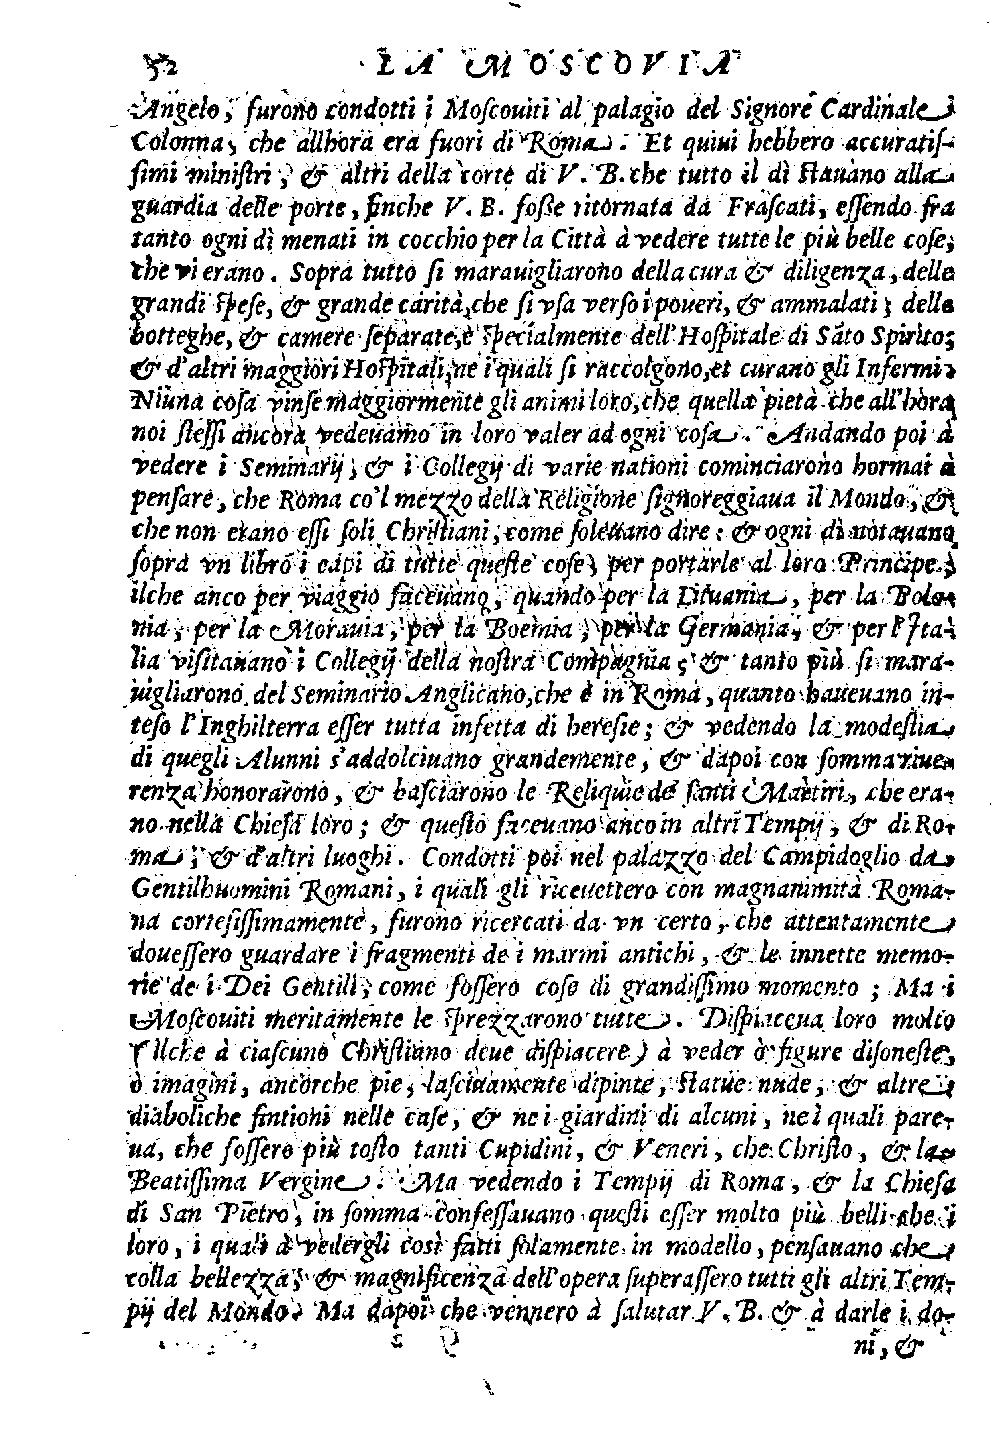 52 LA MOSCOVIA
Angelo, furono condotti i Moscouiti al palagio del Signore Cardinale
Colonna, che allhora era fuori di Roma. Et quiui hebbero accuratiſ-
ſimi miniſtri, & altri della corte di V. B. che tutto il dì ſtauano alla
guardia delle porte, finche V. B. foſſe ritornata da Fraſcati, eſſendo fra
tanto ogni dì menati in cocchio per la Città à vedere tutte le più belle coſe,
che vi erano. Sopra tutto ſi marauigliarono della cura & diligenza, delle
grandi ſpeſe, & grande carità, che ſi vſa verſo i poueri, & ammalati; delle
botteghe, & camere ſeparate, è ſpecialmente dell'Hoſpitale di Sãto Spirito;
& d'altri maggiori Hoſpitali, ne i quali ſi raccolgono, et curano gli Infermi.
Niuna coſa vinſe maggiormente gli animi loro, che quella pietà che all'hora
noi ſteſſi ancora vedeuamo in loro valer ad ogni coſa. Andando poi à
vedere i Seminarij, & i Collegij di varie nationi cominciarono hormai à
penſare, che Roma co'l mezzo della Religione ſignoreggiaua il Mondo, &
che non erano eſſi ſoli Chriſtiani, come ſoleuano dire: & ogni dì notauano
ſopra vn libro i capi di tutte queſte coſe, per portarle al loro Principe.
ilche anco per viaggio faceuano, quando per la Lituania, per la Bolo-
nia, per la Morauia, per la Boemia, per la Germania, & per l'Ita-
lia viſitauano i Collegij della noſtra Compagnia; & tanto più ſi mara-
uigliarono del Seminario Anglicano, che è in Roma, quanto haueuano in-
teſo l'Inghilterra eſſer tutta infetta di hereſie; & vedendo la modeſtia
di quegli Alunni s'addolciuano grandemente, & dapoi con ſomma riue-
renza honorarono, & baſciarono le Reliquie de ſanti Martiri, che era-
no nella Chieſa loro; & queſto faceuano anco in altri Tempij, & di Ro-
ma, & d'altri luoghi. Condotti poi nel palazzo del Campidoglio da
Gentilhuomini Romani, i quali gli riceuettero con magnanimità Roma-
na corteſiſſimamente, furono ricercati da vn certo, che attentamente
doueſſero guardare i fragmenti de i marmi antichi, & le innette memo-
rie de i Dei Gentili, come foſſero coſe di grandiſſimo momento; Ma i
Moſcouiti meritamente le ſprezzarono tutte. Diſpiaceua loro molto
(Ilche à ciaſcuno Chriſtiano deue diſpiacere) à veder ò figure diſoneſte,
ò imagini, ancorche pie, laſciuamente dipinte, ſtatue nude, & altre
diaboliche fintioni nelle caſe, & ne i giardini di alcuni, ne i quali pare-
ua, che foſſero più toſto tanti Cupidini, & Veneri, che Chriſto, & la
Beatiſſima Vergine. Ma vedendo i Tempij di Roma, & la Chieſa
di San Pietro, in ſomma confeſſauano queſti eſſer molto più belli che i
loro, i quali à vedergli così fatti ſolamente in modello, penſauano che
colla bellezza, & magnificenza dell'opera ſuperaſſero tutti gli altri Tem-
pij del Mondo. Ma dapoi che vennero à ſalutar V. B. & à darle i do-
ni, &